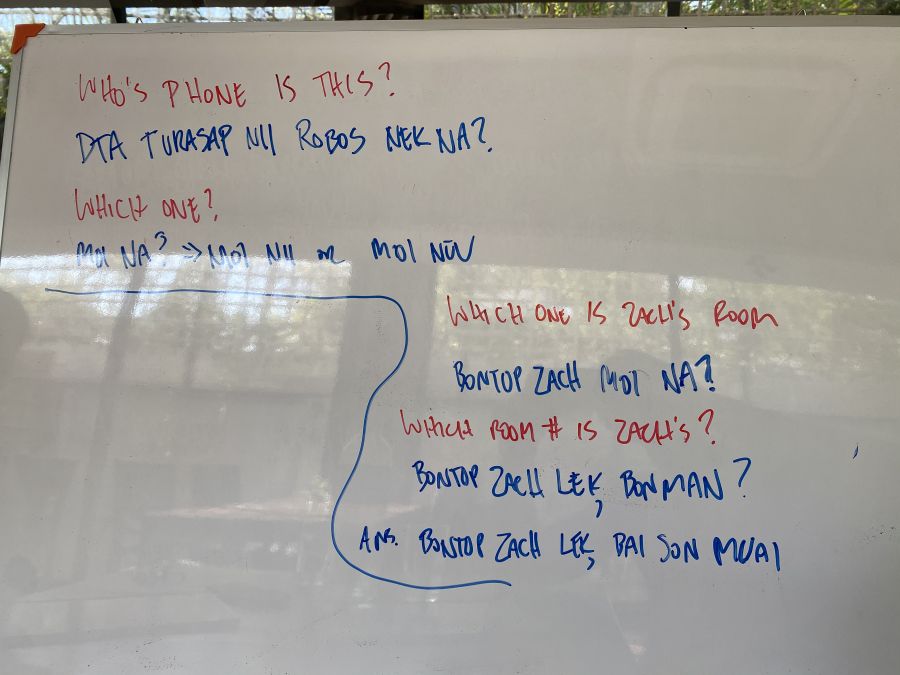 WHO'S PHONE IS THIS?
DTA TURASAP NII ROBOS NEK NA?
WHICH ONE?
MOI NA? => MOI NII or MOI NUV
WHICH ONE IS ZACH'S ROOM
BONTOP ZACH MOI NA?
WHICH ROOM # IS ZACH'S?
BONTOP ZACH LEK, BONMAN?
ANS. BONTOP ZACH LEK, BAI SON MUAI